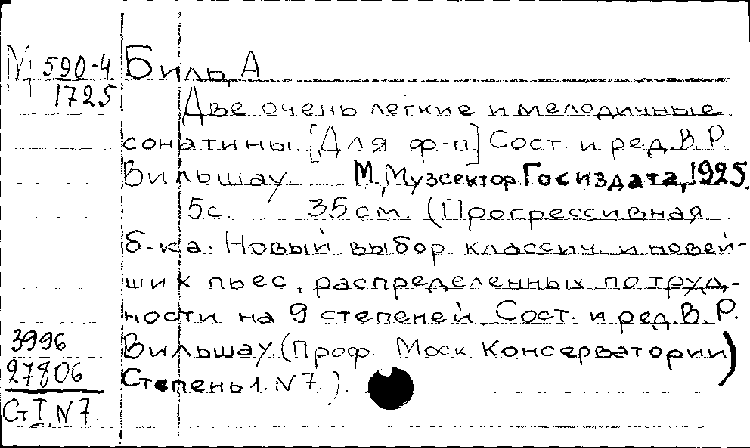 М 590-4
1725
Биль, А
Две очень легкие и мелодичные
сонатины. [Для ф-п] Сост. и ред. В. Р.
Вильшау М., Музсектор Госиздата, 1925.
5 с. 35 см. (Прогрессивная
б-ка. Новый выбор классич. и новей-
ших пьес, распределенных по труд-
ности на 9 степеней. Сост. и ред. В. Р.
Вильшау (Проф. Моск. Консерватории)
Степень 1. N 7.).
3996
27806
GI, N 7